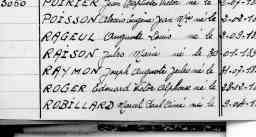 3060 POIRIER Jean Baptiste Victor né le
POISSON Alexis Eugène Jean Mie né le
RAGEUL Auguste Louis né le
RAISON Jules Marie né le 30
RAYMON Joseph Auguste Jules né le
ROGER Edouard Victor Alphonse né le
ROBILLARD Marcel Paul Aimé né le